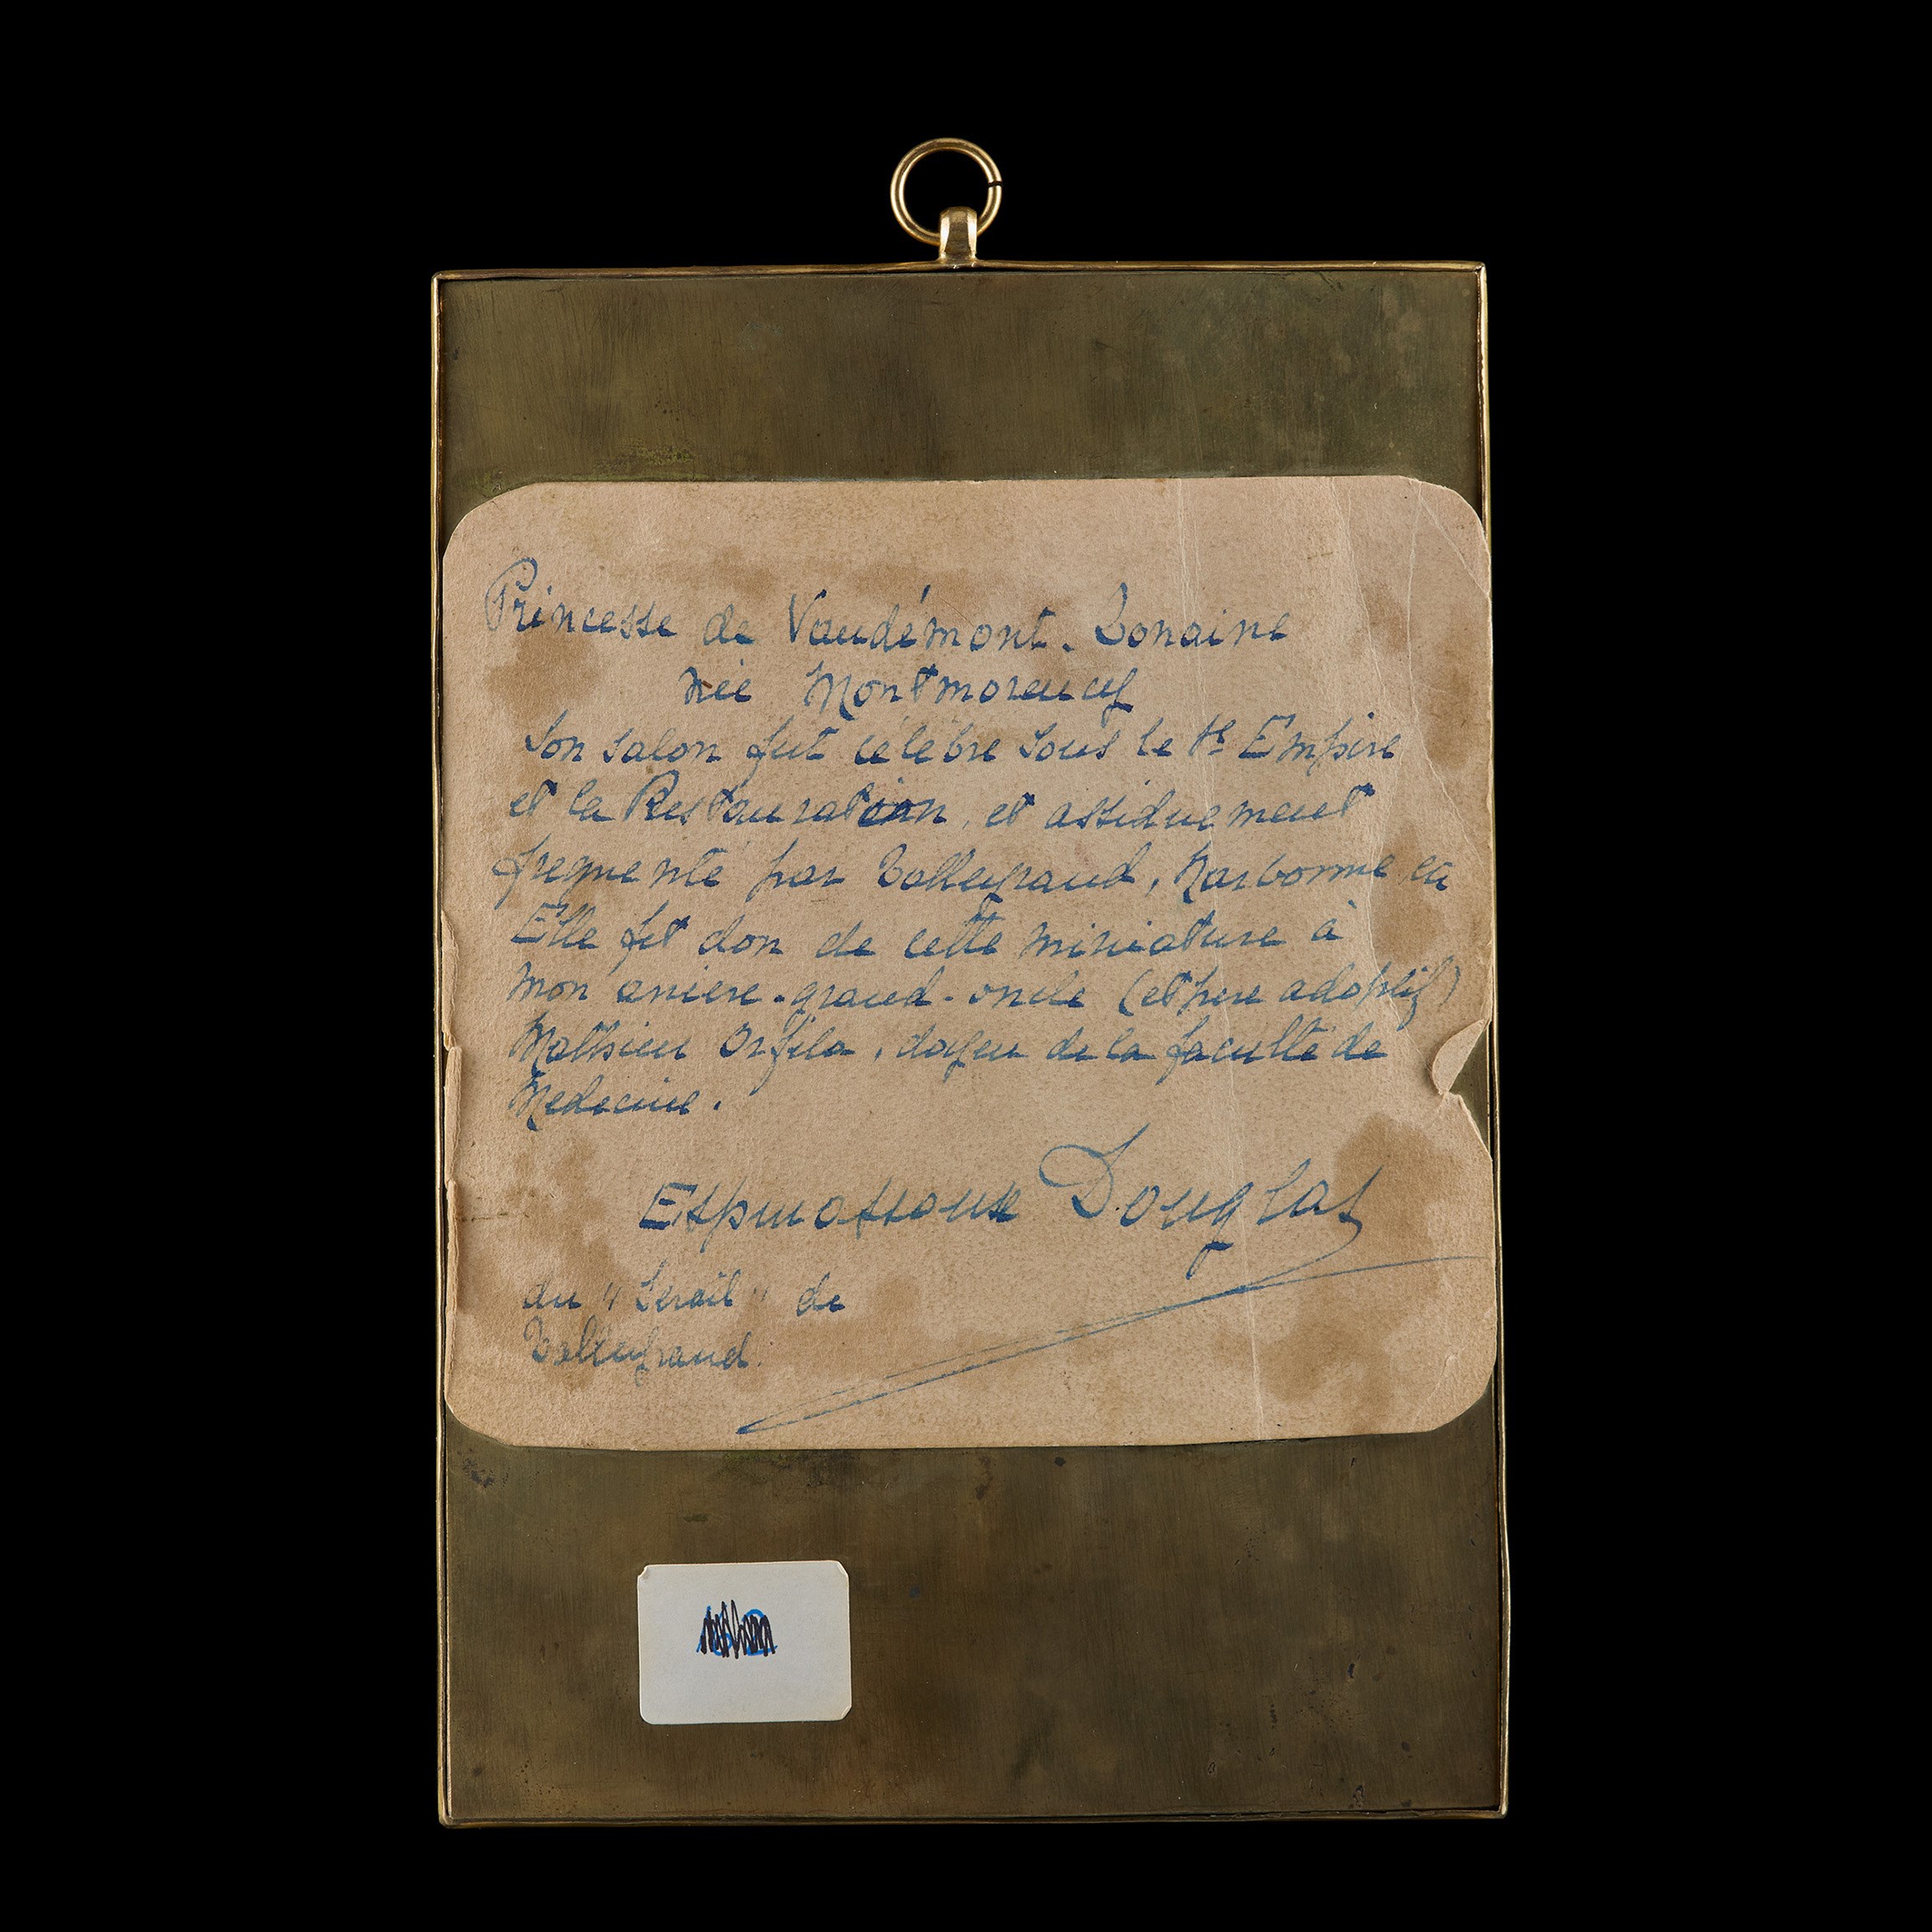 Princesse de Vaudémont. Lorraine
née Montmorency
Son salon fut célèbre sous le 1er Empire
et la Restauration, et assiduement
frequenté par Talleyrand, Narbonne
Elle fit don de cette miniature à
mon arriere-grand-oncle (et pere adoptif)
Mathieu Orfila, doyen de la faculté de
Medecine.
Douglas
du "Serail" de
Talleyrand.